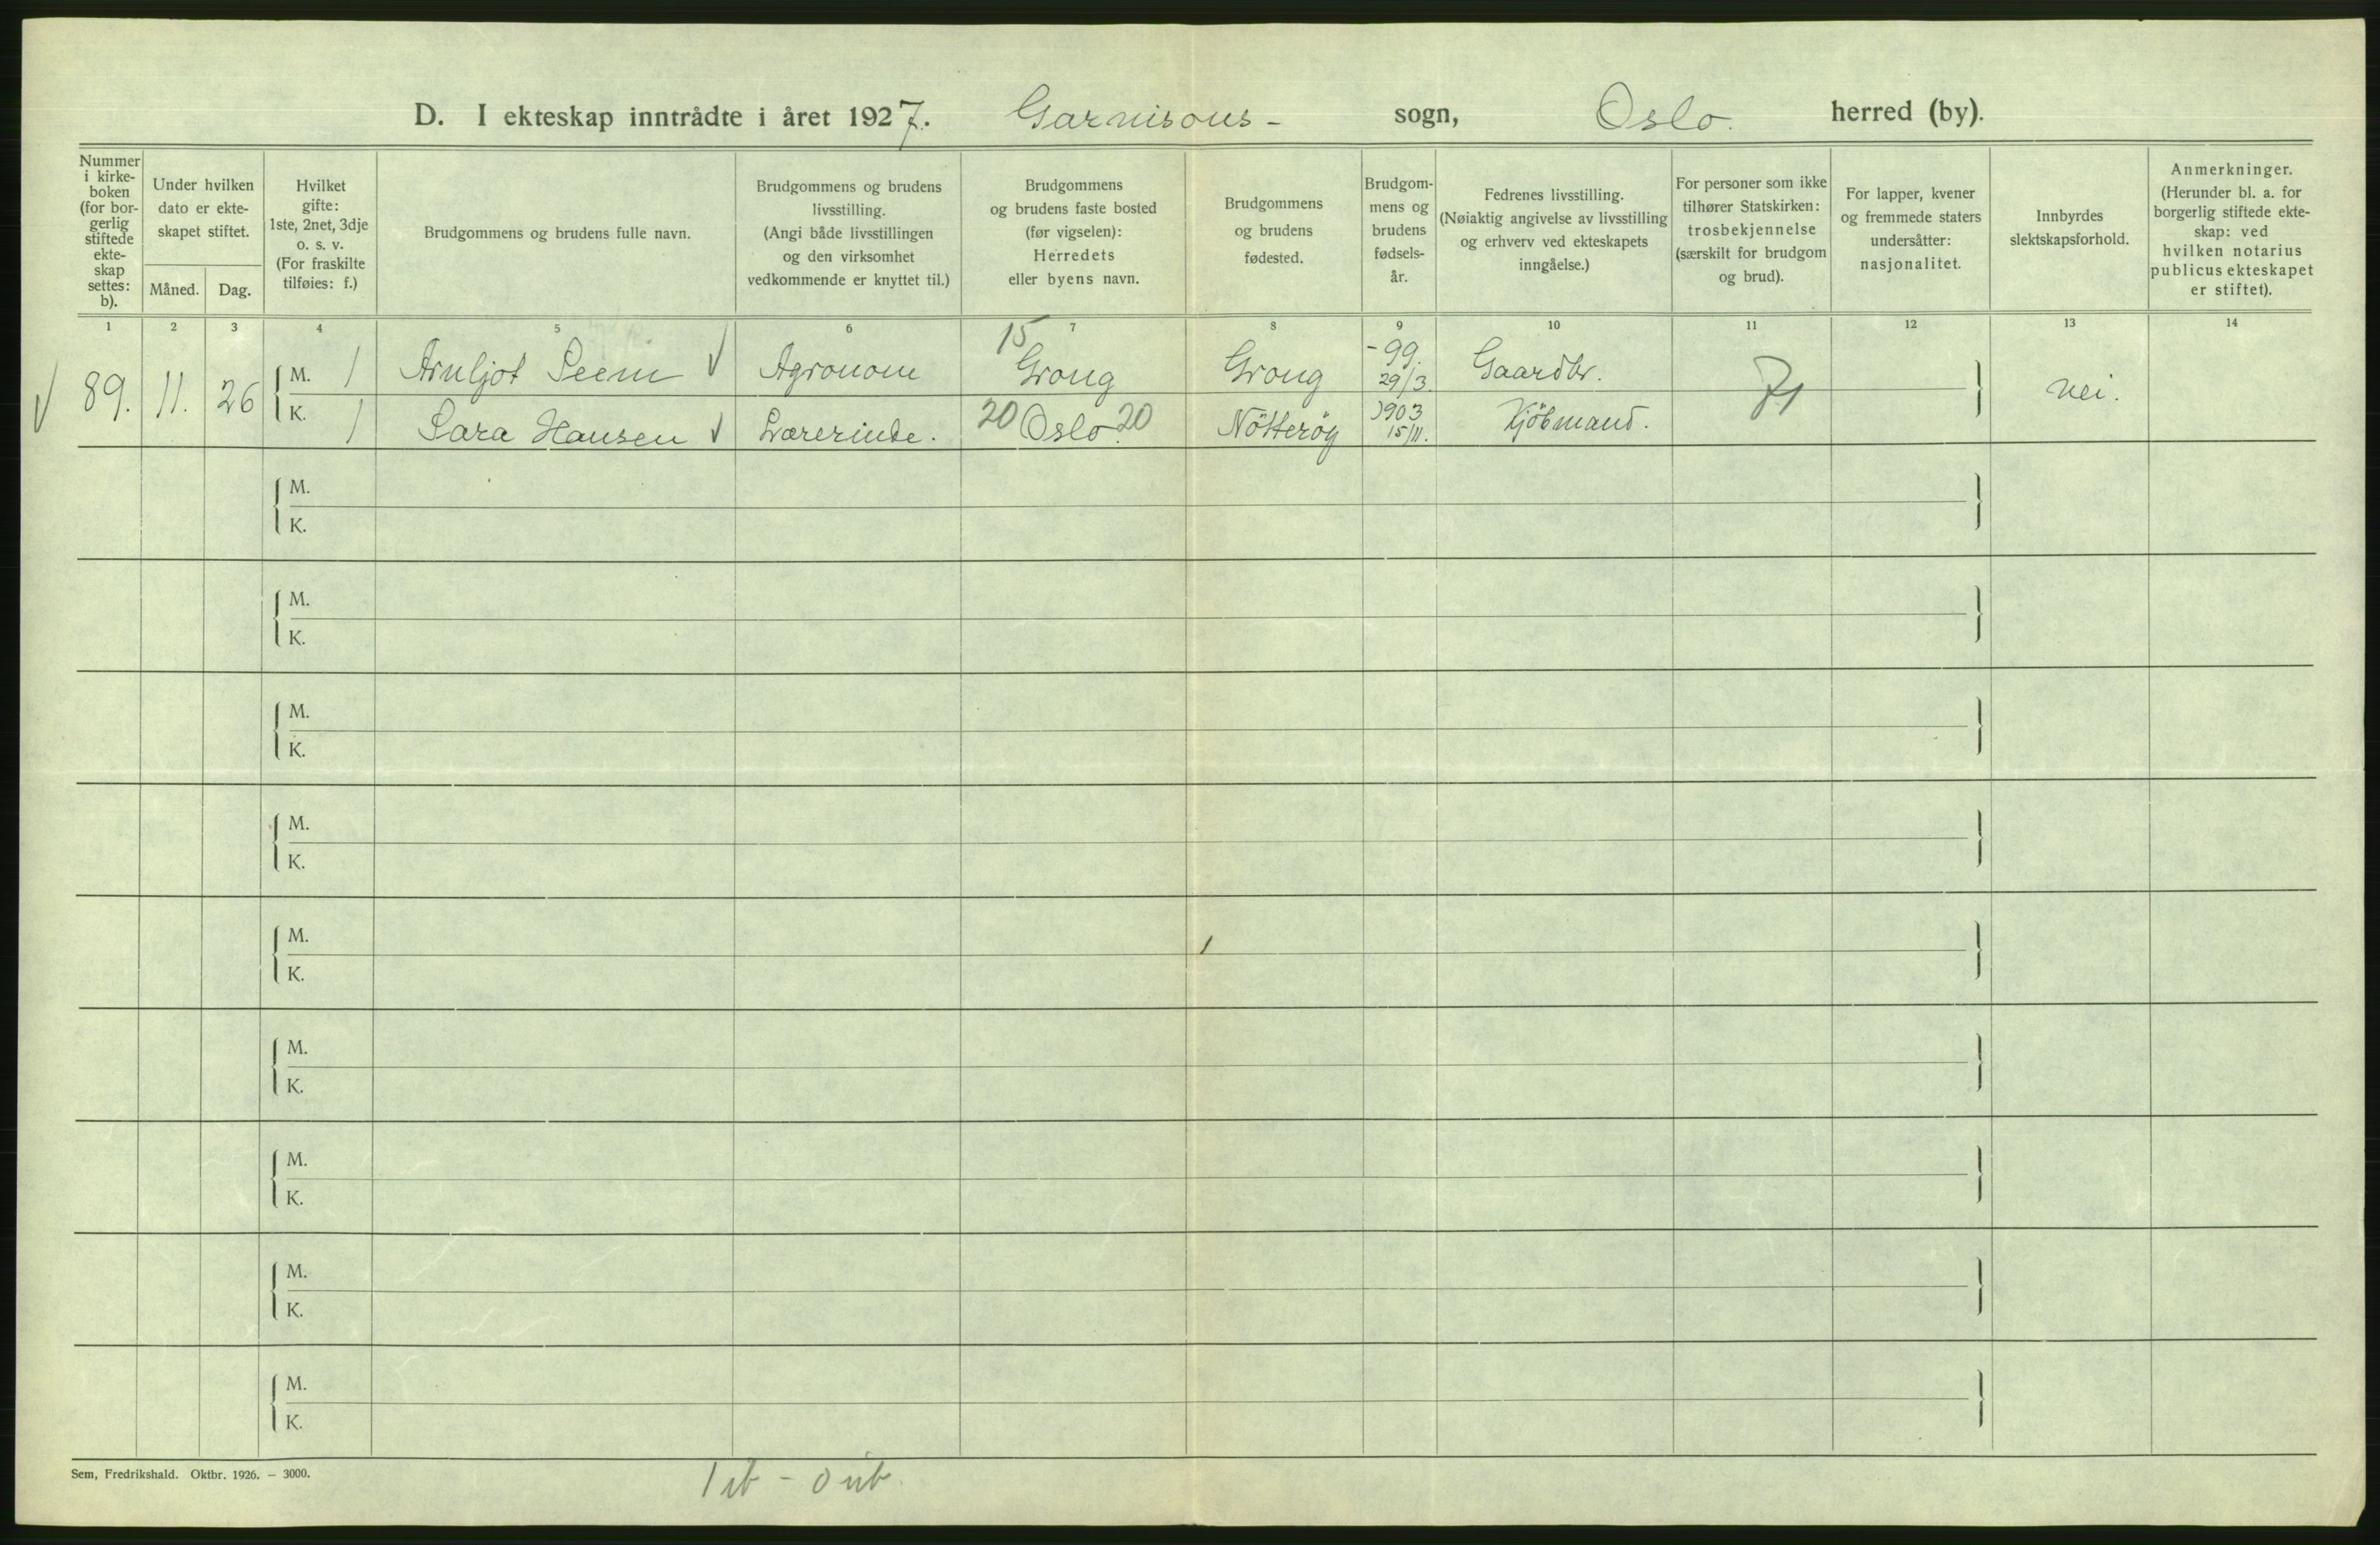 D. I ekteskap inntrådte i året 1927. Garnisons- sogn, Oslo. herred (by).
Nummer i kirke-boken (for bor-gerlig stiftede ekte-skap settes: b).
Under hvilken dato er ekte-skapet stiftet.
Måned. Dag.
Hvilket gifte: 1ste, 2net, 3dje o. s. v. (For fraskilte tilføies: f.)
Brudgommens og brudens fulle navn.
Brudgommens og brudens livsstilling. (Angi både livsstillingen og den virksomhet vedkommende er knyttet til.)
Brudgommens og brudens faste bosted (før vigselen): Herredets eller byens navn.
Brudgommens og brudens fødested.
Brudgom-mens og brudens fødsels-år.
Fedrenes livsstilling. (Nøiaktig angivelse av livsstilling og erhverv ved ekteskapets inngåelse.)
For personer som ikke tilhører Statskirken: trosbekjennelse (særskilt for brudgom og brud).
For lapper, kvener og fremmede staters undersåtter: nasjonalitet.
Innbyrdes slektskapsforhold.
Anmerkninger. (Herunder bl. a. for borgerlig stiftede ekte-skap: ved hvilken notarius publicus ekteskapet er stiftet).
1 2 3 4 5 6 7 8 9 10 11 12 13 14
89. 11. 26 M. 1 Arnljot Seem Agronom 15 Grong Grong -99. 29/3. Gaardbr. 71 nei.
K. 1 Sara Hansen Lærerinde. 20 Oslo. 20 Nötteröy 1903 15/11. Kjöbmand.
M.
K.
M.
K.
M.
K.
M.
K.
M.
K.
M.
K.
M.
K.
M.
K.
M.
K.
Sem, Fredrikshald. Oktbr. 1926. – 3000.
1 ib - 0 uib.